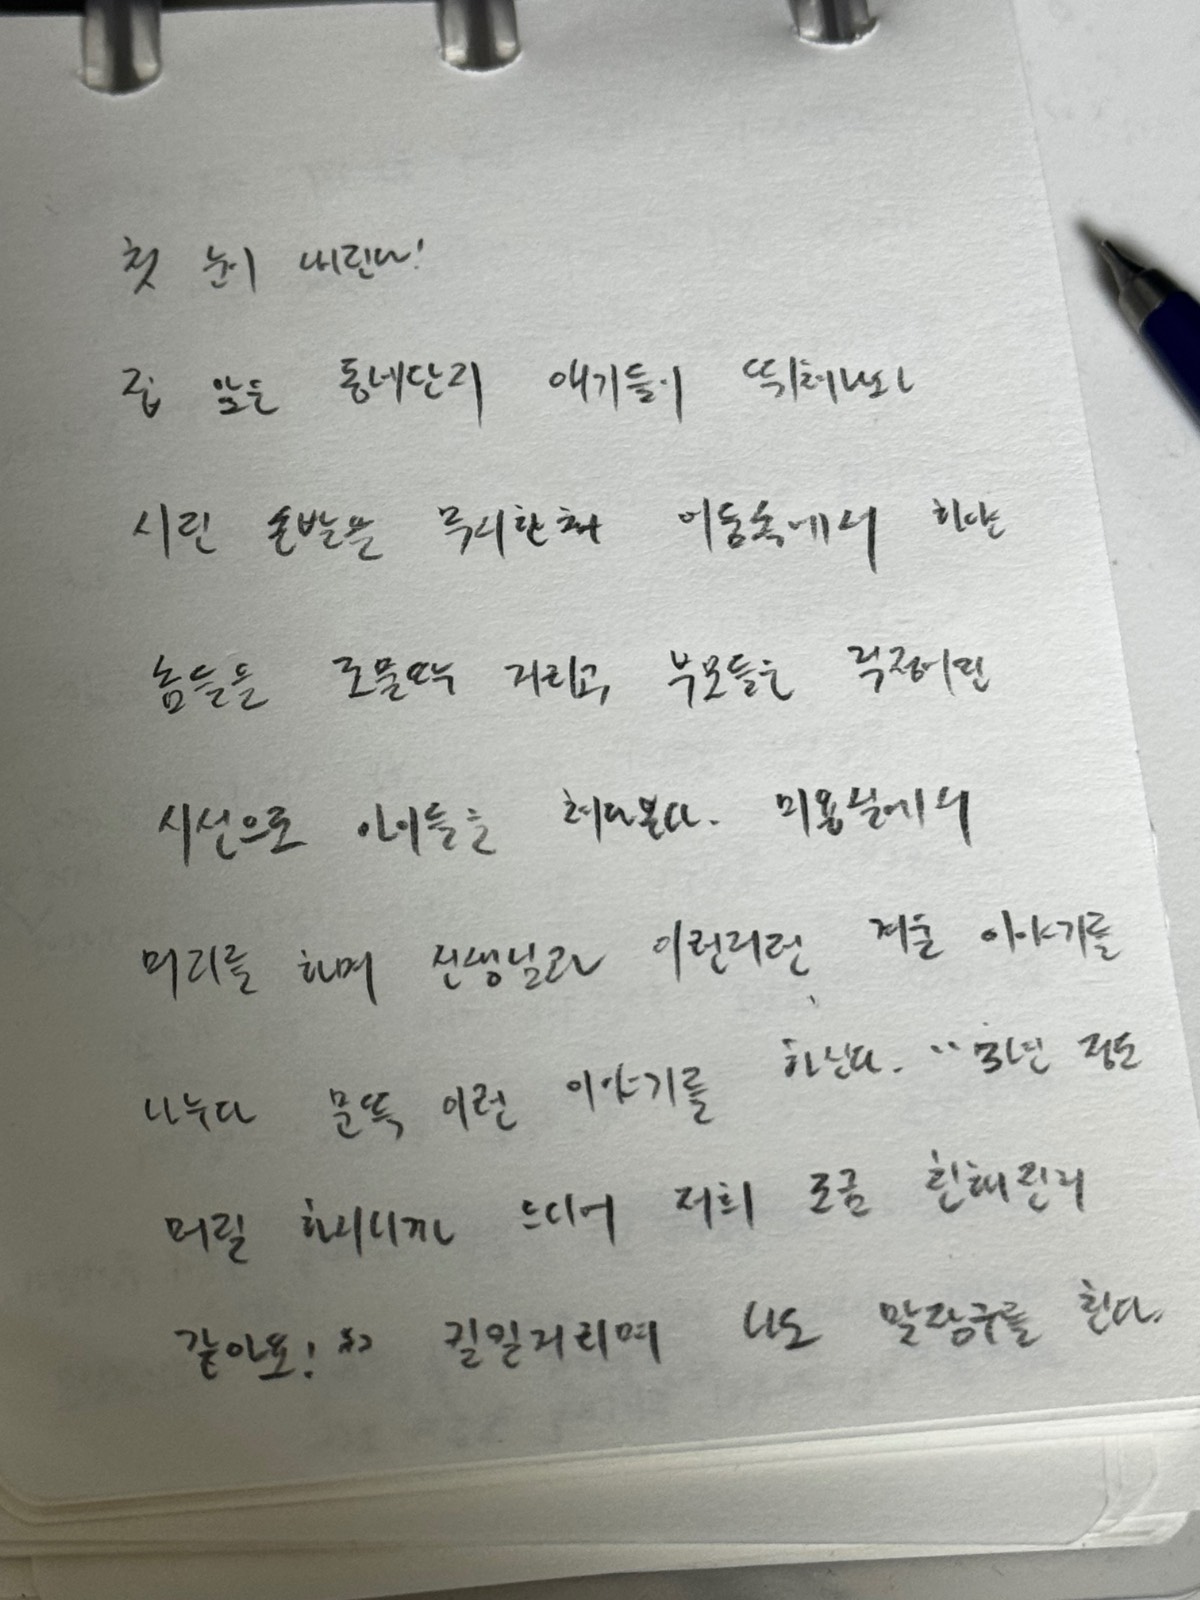 첫 눈이 내린다!
집 앞은 동네단지 애기들이 뛰쳐나와
시린 손발은 무시한채 어둠속에서 하얀
놈들을 조물딱 거리고, 부모들은 걱정어린
시선으로 아이들을 쳐다본다. 미용실에서
머리를 하며 선생님과 이런저런 겨울 이야기를
나누다 문뜩 이런 이야기를 하신다. "3년 정도
머릴 하시니까 드디어 저희 조금 친해진거
같아요! ㅋㅋ 낄낄거리며 나도 맞장구를 친다.